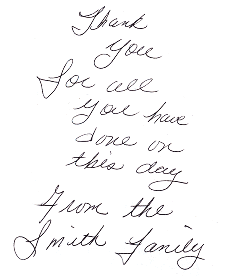 Thank
you
for all
you have
done on
this day
From the
Smith Family